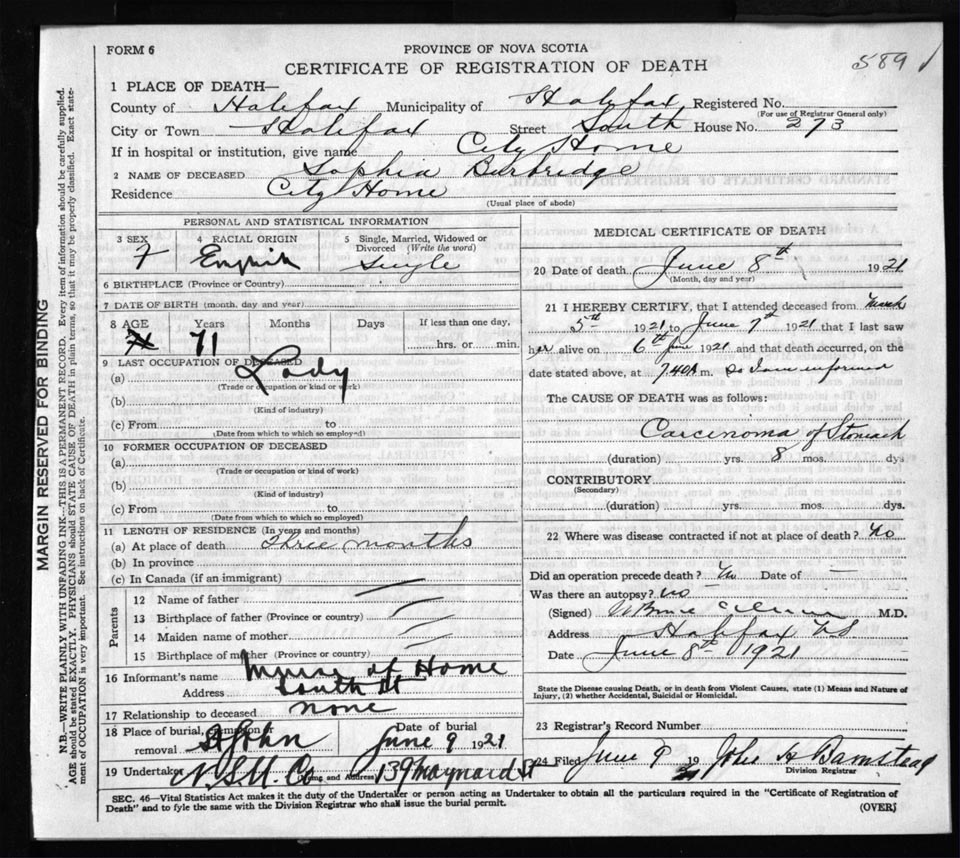 FORM 6
PROVINCE OF NOVA SCOTIA
589
CERTIFICATE OF REGISTRATION OF DEATH
1 PLACE OF DEATH—
County of Halifax Municipality of Halifax Registered No.
(For use of Registrar General only)
City or Town Halifax Street South House No. 273
If in hospital or institution, give name City Home
2 NAME OF DECEASED Sophia Burbridge
Residence City Home
(Usual place of abode)
PERSONAL AND STATISTICAL INFORMATION
3 SEX 4 RACIAL ORIGIN 5 Single, Married, Widowed or Divorced (Write the word)
F English Single
6 BIRTHPLACE (Province or Country)
7 DATE OF BIRTH (month, day and year)
8 AGE Years Months Days If less than one day,
71 hrs. or min.
9 LAST OCCUPATION OF DECEASED
(a) Lady
(Trade or occupation or kind or work)
(b)
(Kind of industry)
(c) From to
(Date from which to which so employed)
10 FORMER OCCUPATION OF DECEASED
(a)
(Trade or occupation or kind of work)
(b)
(Kind of industry)
(c) From to
(Date from which to which so employed)
11 LENGTH OF RESIDENCE (In years and months)
(a) At place of death three months
(b) In province
(c) In Canada (if an immigrant)
Parents
12 Name of father
13 Birthplace of father (Province or country)
14 Maiden name of mother
15 Birthplace of mother (Province or country)
16 Informant's name of Home
Address South St
17 Relationship to deceased none
18 Place of burial, cremation or removal St John Date of burial June 9 1921
19 Undertaker N.S.U. Co (Name and Address) 139 Maynard St
MEDICAL CERTIFICATE OF DEATH
20 Date of death June 8th 1921
(Month, day and year)
21 I HEREBY CERTIFY, that I attended deceased from March
5th 1921 to June 7th 1921 that I last saw
her alive on 6th June 1921 and that death occurred, on the
date stated above, at 7.40A m. so I am informed
The CAUSE OF DEATH was as follows:
Carcinoma of Stomach
(duration) yrs. 8 mos. dys
CONTRIBUTORY
(Secondary)
(duration) yrs. mos. dys.
22 Where was disease contracted if not at place of death? No
Did an operation precede death? No Date of —
Was there an autopsy? no
(Signed) M.D.
Address Halifax NS
Date June 8th 1921
State the Disease causing Death, or in death from Violent Causes, state (1) Means and Nature of
Injury, (2) whether Accidental, Suicidal or Homicidal.
23 Registrar's Record Number
24 Filed June 9 1921 John A Barnstead
Division Registrar
SEC. 46—Vital Statistics Act makes it the duty of the Undertaker or person acting as Undertaker to obtain all the particulars required in the "Certificate of Registration of
Death" and to fyle the same with the Division Registrar who shall issue the burial permit.
(OVER)
MARGIN RESERVED FOR BINDING
N.B.—WRITE PLAINLY WITH UNFADING INK—THIS IS A PERMANENT RECORD. Every item of information should be carefully supplied.
AGE should be stated EXACTLY. PHYSICIANS should STATE CAUSE OF DEATH in plain terms, so that it may be properly classified. Exact state-
ment of OCCUPATION is very important. See instructions on back of Certificate.